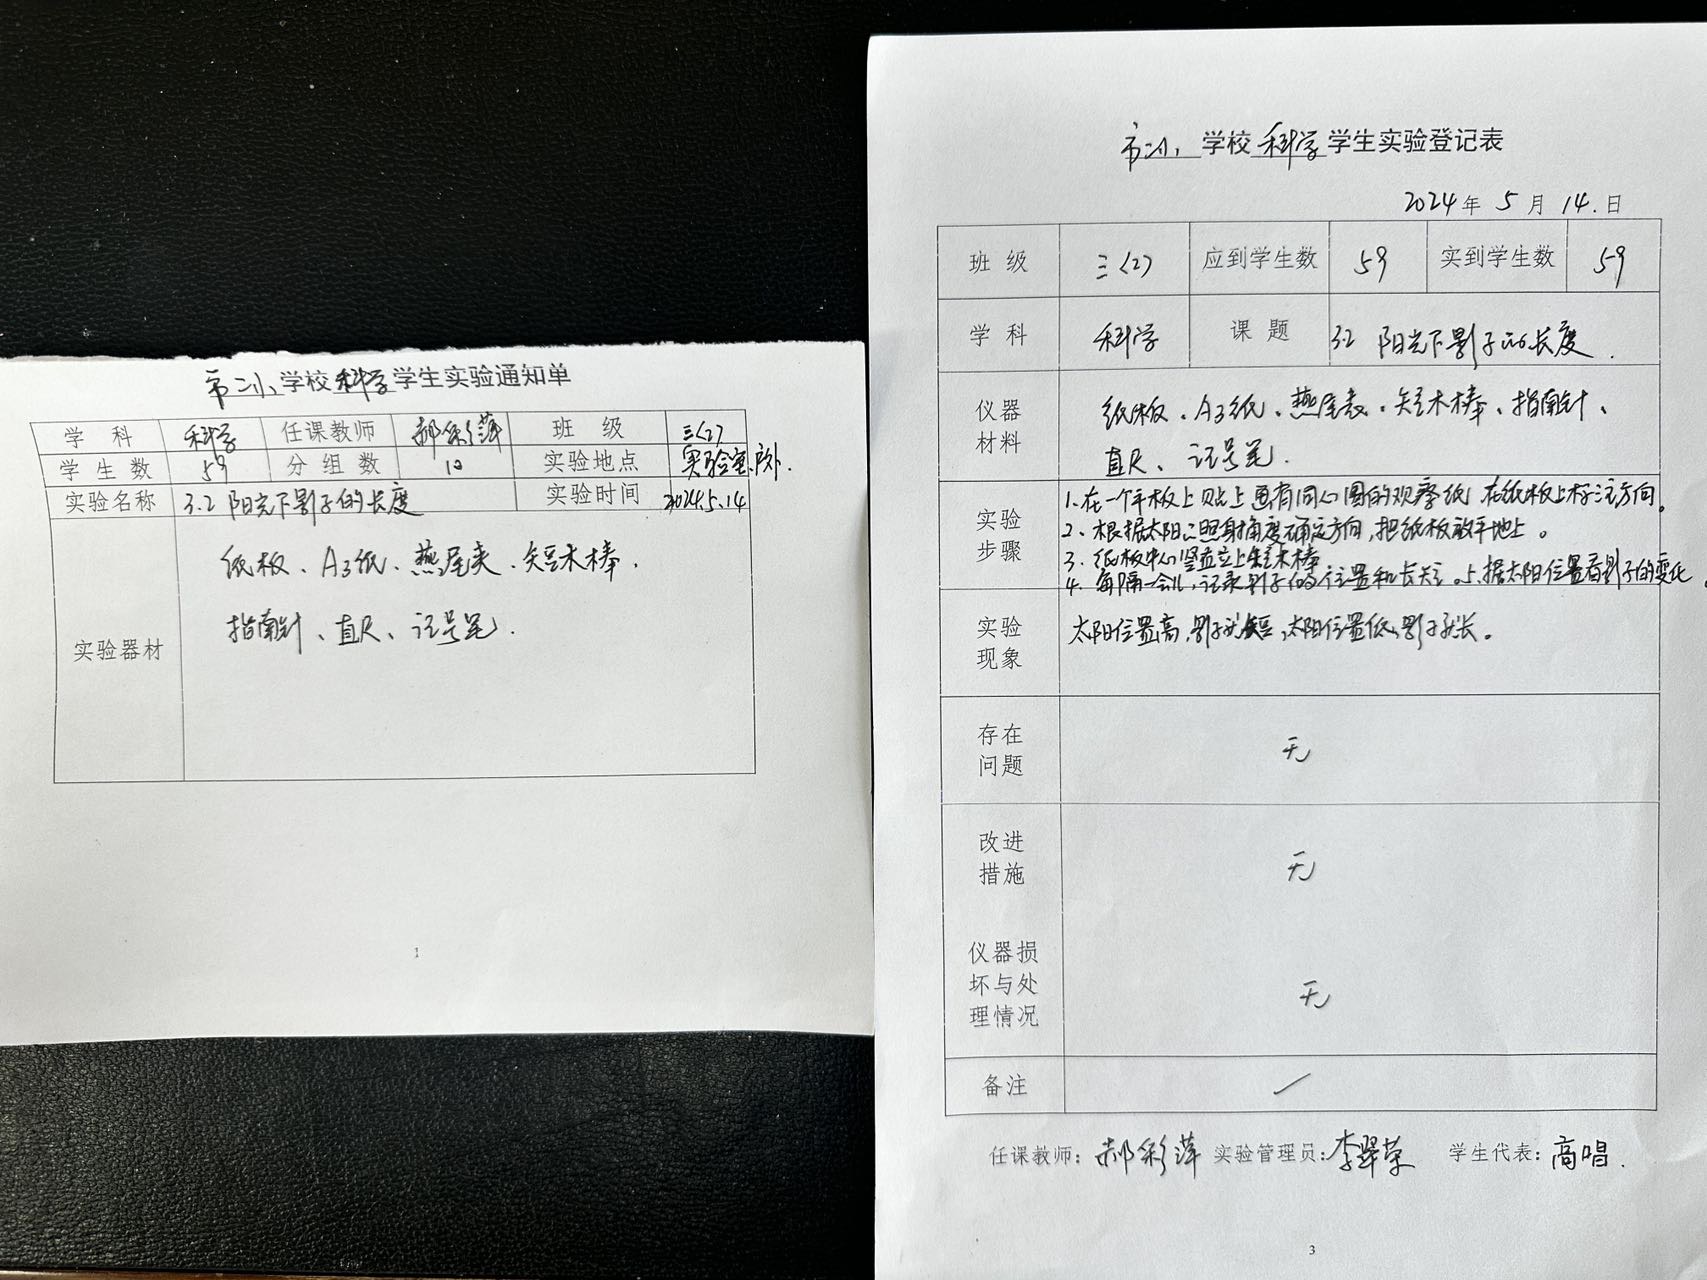 市二小学校科学学生实验通知单
学科 科学 任课教师 郝彩萍 班级 三（2）
学生数 59 分组数 10 实验地点 实验室、户外.
实验名称 3.2 阳光下影子的长度 实验时间 2024.5.14
实验器材
纸板、A3纸、燕尾夹、短木棒、
指南针、直尺、记号笔.
1
市二小学校科学学生实验登记表
2024年5月14.日
班级 三（2） 应到学生数 59 实到学生数 59
学科 科学 课题 3.2 阳光下影子的长度.
仪器材料
纸板、A3纸、燕尾表、短木棒、指南针、
直尺、记号笔.
实验步骤
1.在一个平板上贴上画有同心圆的观察纸 在纸板上标注方向。
2、根据太阳照射角度确定方向,把纸板放平地上。
3、纸板中心竖直立上短木棒
4、每隔一会儿,记录影子的位置和长短。5、据太阳位置看影子的变化
实验现象
太阳位置高,影子就短,太阳位置低,影子就长。
存在问题 无
改进措施 无
仪器损坏与处理情况 无
备注 /
任课教师：郝彩萍 实验管理员：李翠荣 学生代表：高唱.
3